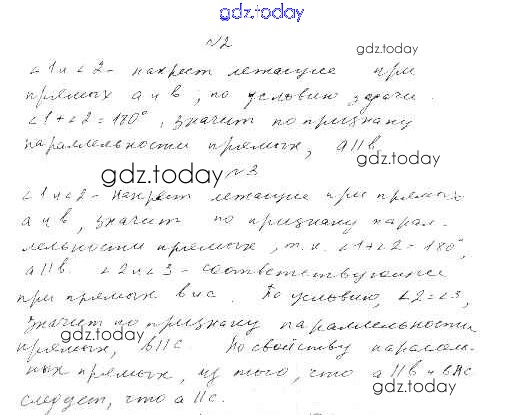 gdz.today
№2
gdz.today
∠1 и ∠2 - накрест лежащие при
прямых a и b, по условию задачи.
∠1+∠2=180°, значит по признаку
параллельности прямых, a||b
gdz.today
gdz.today
№3
∠1 и ∠2 - накрест лежащие при прямых
a и b, значит по признаку парал-
лельности прямых, т.к. ∠1+∠2=180°,
a||b. ∠2 и ∠3 - соответствующие
при прямых b и c. По условию, ∠2=∠3,
значит по признаку параллельности
gdz.today
прямых, b||c. По свойству параллель-
ных прямых, из того, что a||b и b||c
gdz.today
следует, что a||c.